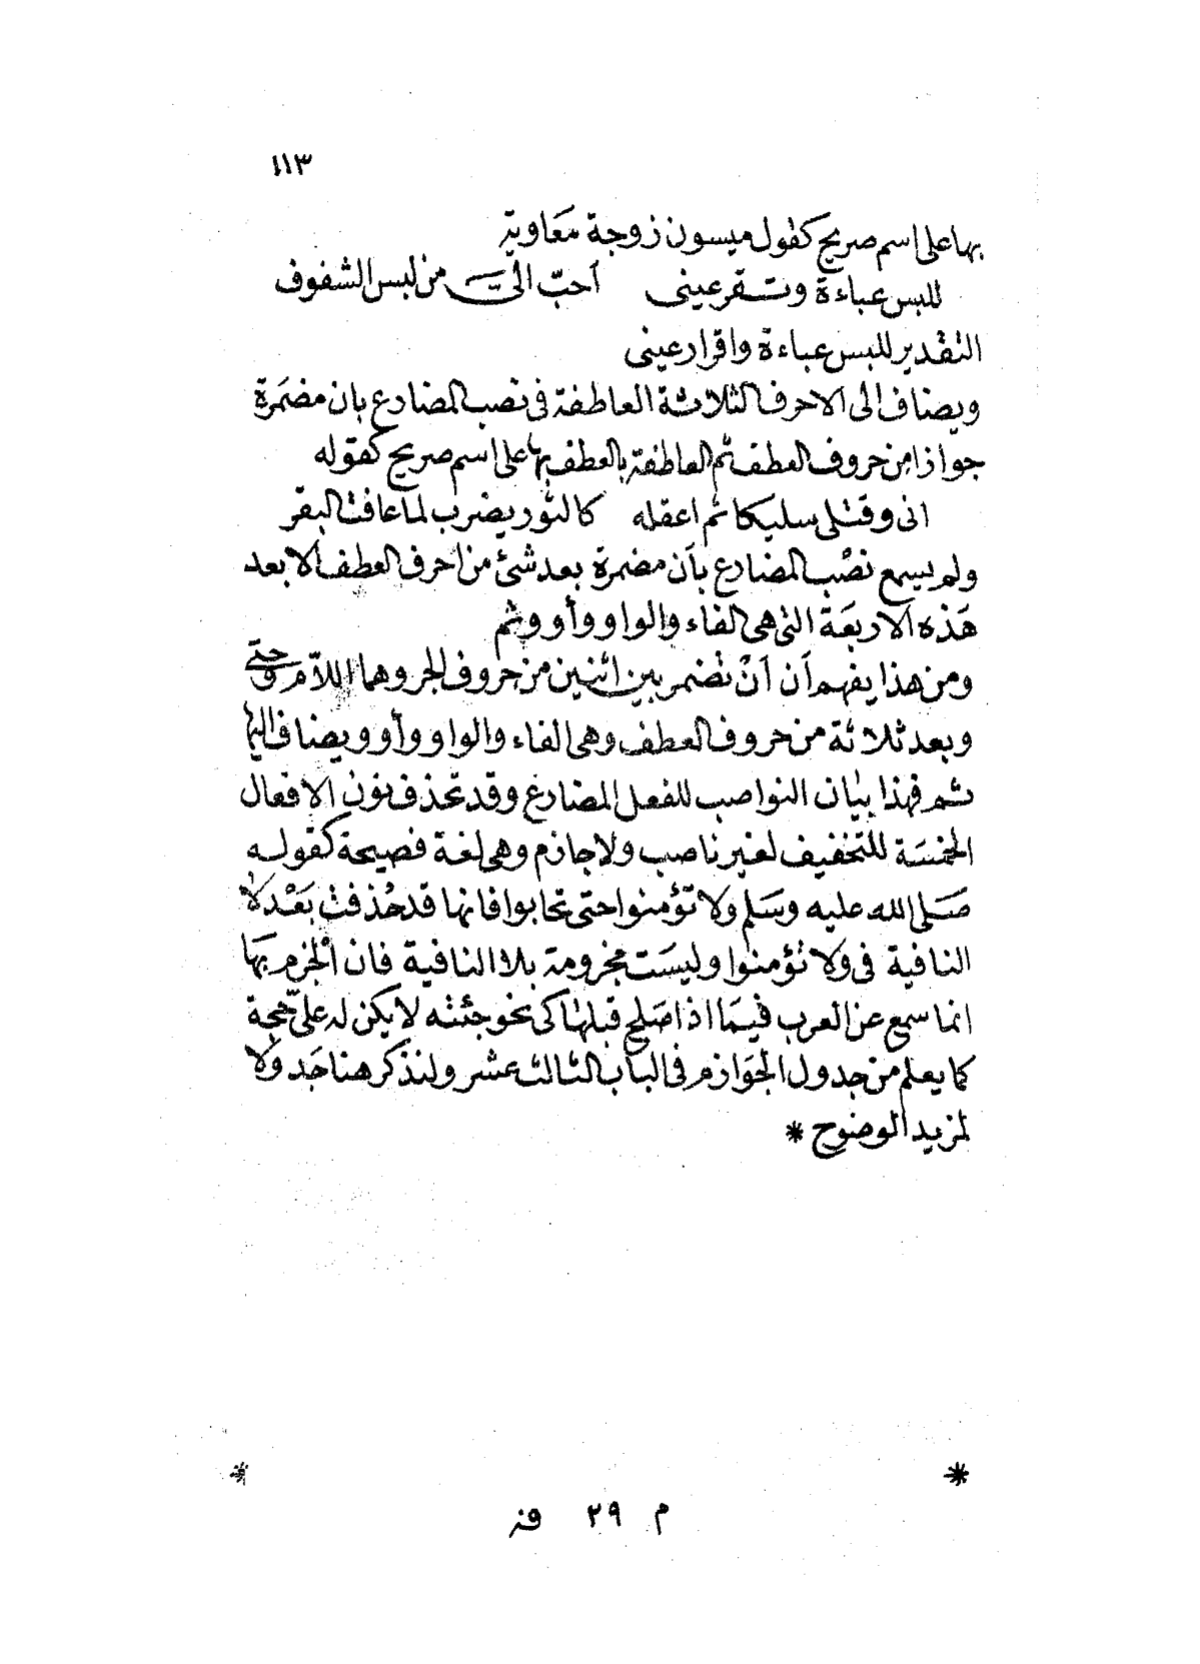 ١١٣
بها على اسم صريح كقول ميسون زوجة مَعَاوية
للبس عباءة وتقر عينى أحبّ الىّ من لبس الشفوف
التقدير للبس عباءة واقرار عينى
ويضاف الى الاحرف الثلاثة العاطفة فى نصب المضارع بان مضمَرة
جوازا من حروف العطف ثم العاطفة بالعطف بها على اسم صريح كقوله
انى وقتلى سليكا ثم اعقله كالثور يضرب لما عافت البقر
ولم يسمع نصْب المضارع بأن مضمرة بعد شئ من احرف العطف الا بعد
هَذه الاربعَة التى هى الفاء والواو وأو وثم
ومن هذا يفهم أن أنْ تضمر بين اثنين من حروف الجر وهما اللاّم وحتى
وبعد ثلاثة من حروف العطف وهى الفاء والواو وأو ويضاف اليها
ثم فهذا بيان النواصب للفعل المضارع وقد تحذف نون الافعال
الخمسَة للتخفيف لغير ناصب ولا جازم وهى لغة فصيحة كقوله
صَلى الله عليه وسَلم ولا تؤمنوا حتى تحابوا فانها قد حُذفت بَعْد لا
النافية فى ولا تؤمنوا وليسَت مجزومة بلا النافية فان الْجزم بهَا
انما سمع عن العرب فيمَا اذا صَلح قبلها كى نحو جئته لا يكن له علىّ حجة
كما يعلم من جدول الجَوازم فى الباب الثالث عشر ولنذكر هنا جَدولا
لمزيد الوضوح *
* *
م ٢٩ قنـ